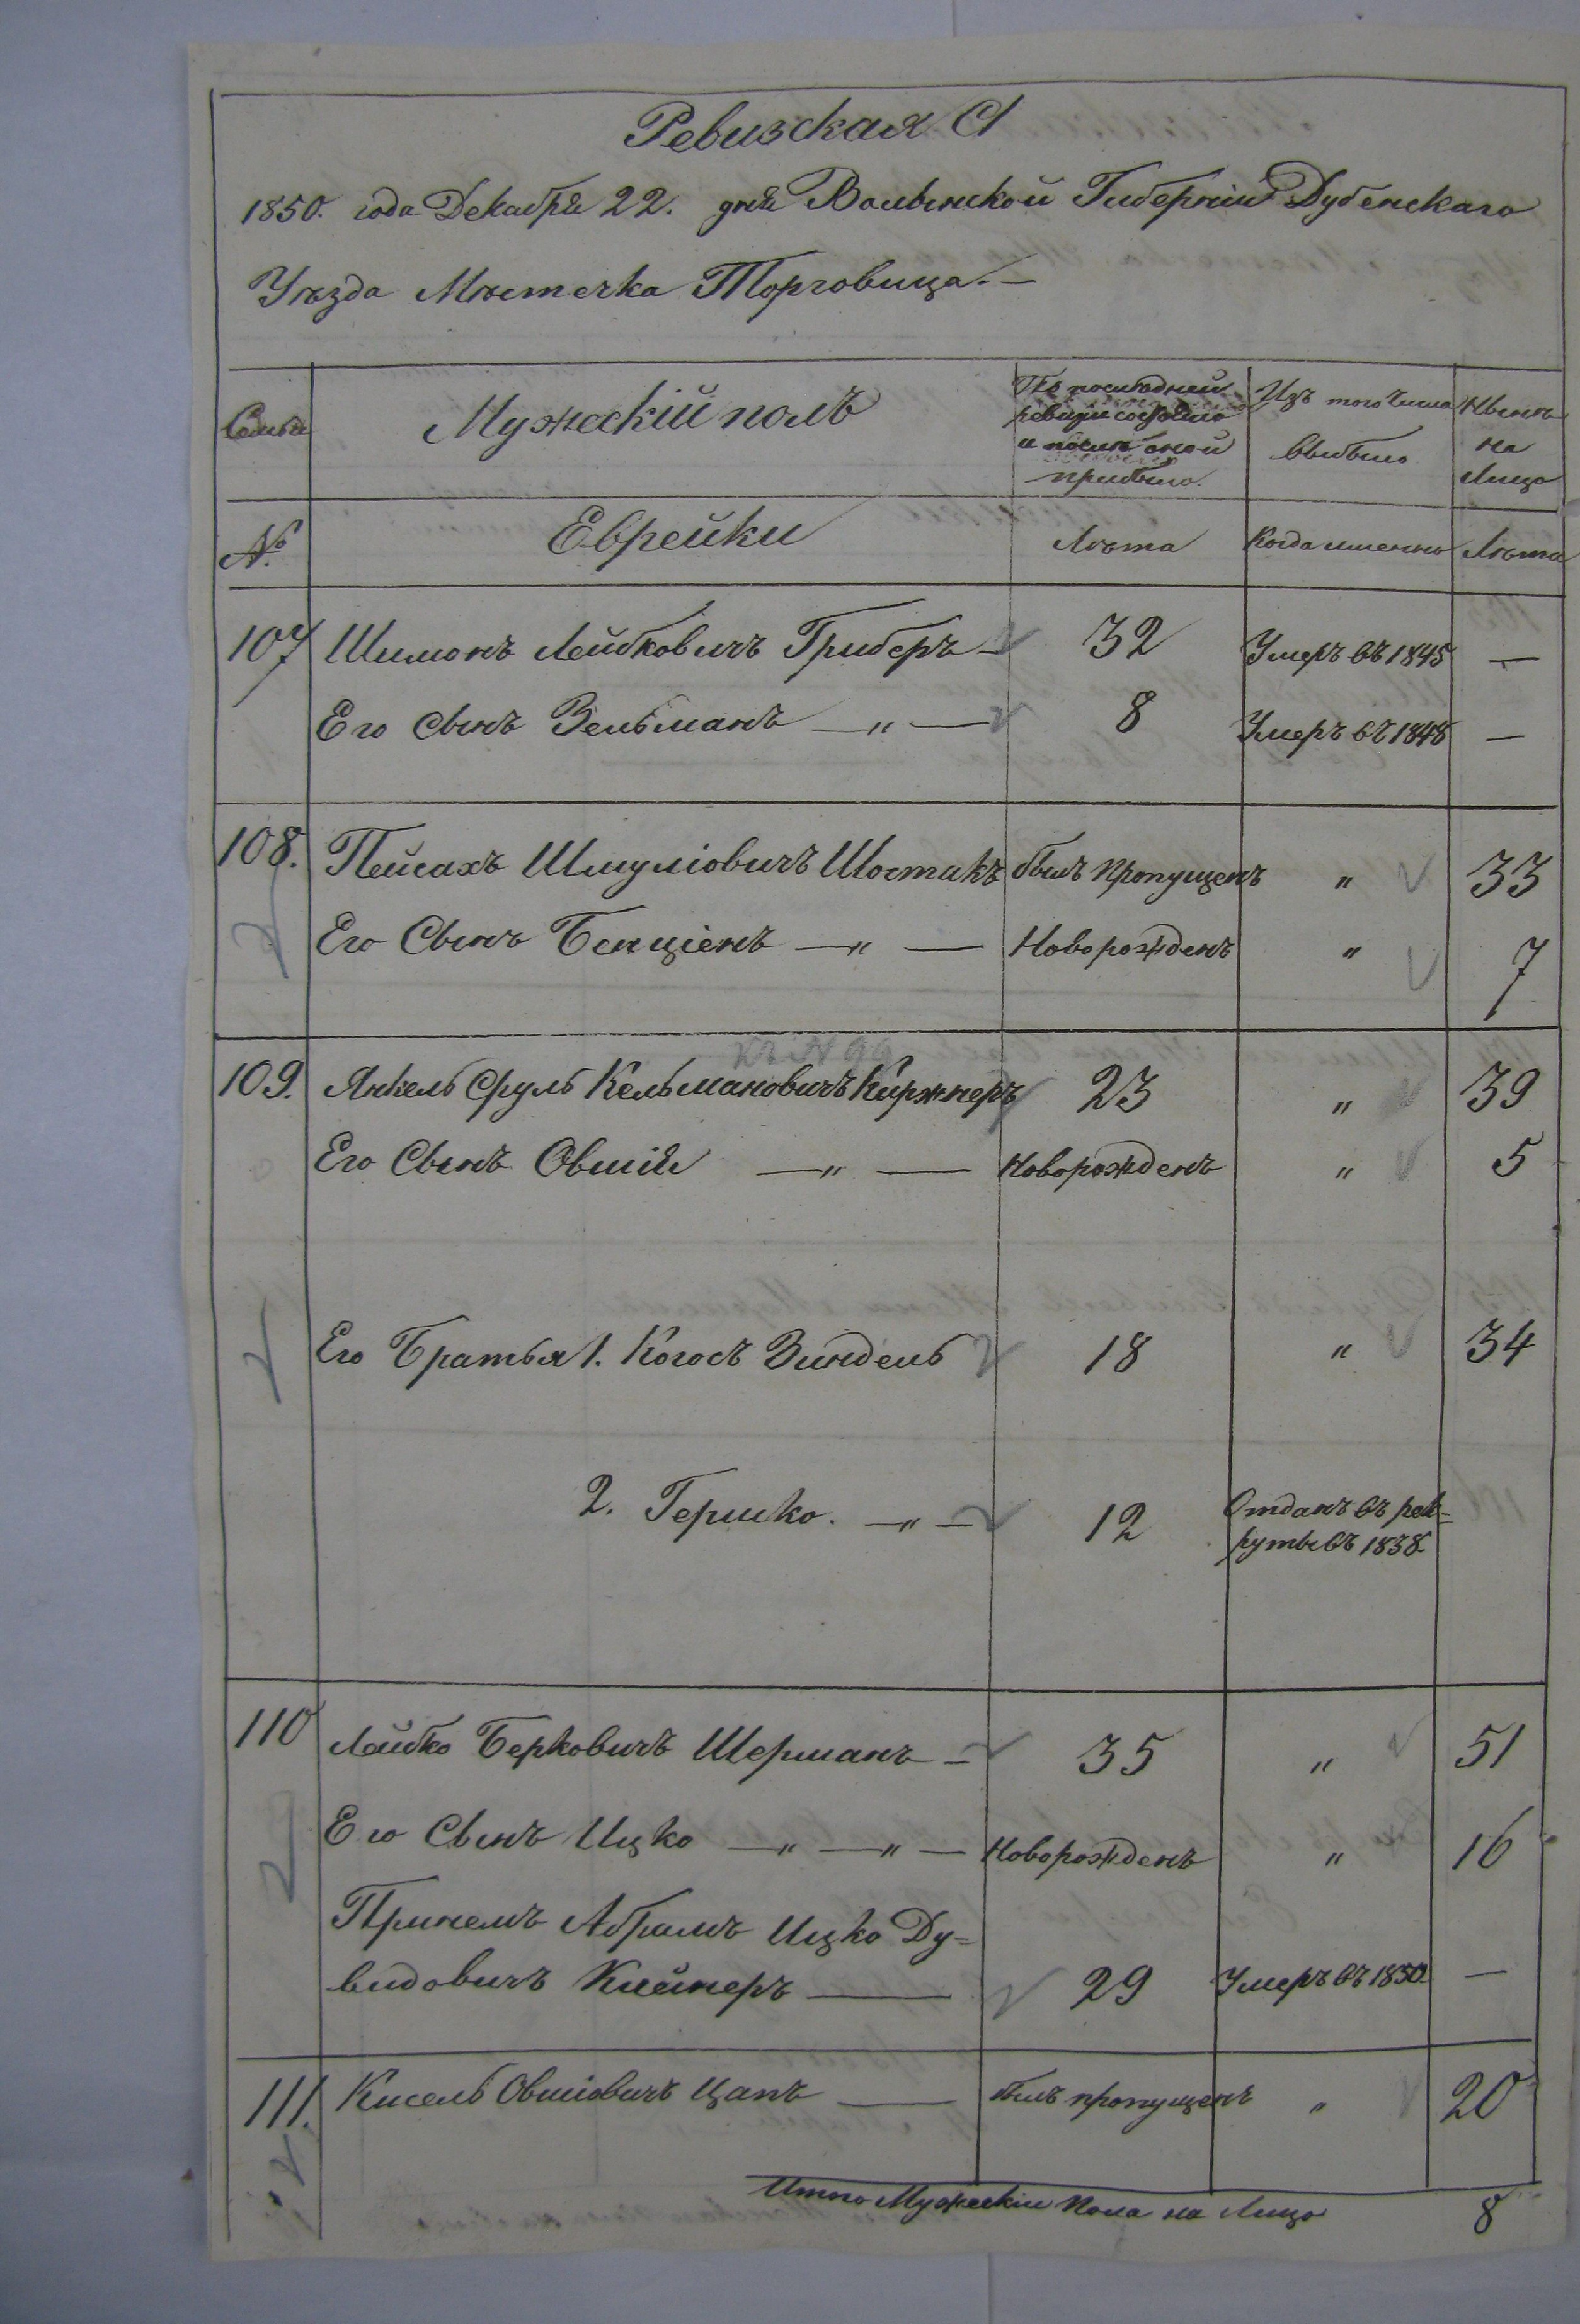 Ревизская С
1850. года Декабря 22. дня Волынской Губернiи Дубенскаго
Уѣзда Мѣстечка Торговица. —
Семьи
Мужескiй полъ
По послѣдней ревизiи состояло и послѣ оной прибыло.
Изъ того числа выбыло
Нынѣ на Лицо
№
Еврейки
Лѣта
Когда именно
Лѣта
107 Шимонъ Лейбковичъ Груберъ — 32 Умеръ въ 1845 —
Его сынъ Зельманъ — „ — 8 Умеръ въ 1848 —
108. Пейсахъ Шмулiовичъ Шостакъ былъ пропущенъ „ 33
Его Сынъ Бенцiенъ — „ — Новорожденъ „ 7
къ N 99
109. Янкель Сруль Кельмановичъ Киржнеръ 23 „ 39
Его Сынъ Овшiй — „ — Новорожденъ „ 5
Его Братья 1. Когосъ Зиндель 18 „ 34
2. Гершко. — „ — 12 Отданъ въ рек=
руты въ 1838.
110 Лейбко Берковичъ Шерманъ — 35 „ 51
Его Сынъ Ицко — „ — „ — Новорожденъ „ 16
Прiнемъ Абрамъ Ицко Ду=
видовичъ Клейнеръ — 29 Умеръ въ 1850. —
111. Кисель Овшiовичъ Цапъ — былъ пропущенъ „ 20
Итого Мужескiй Пола на Лицо 8